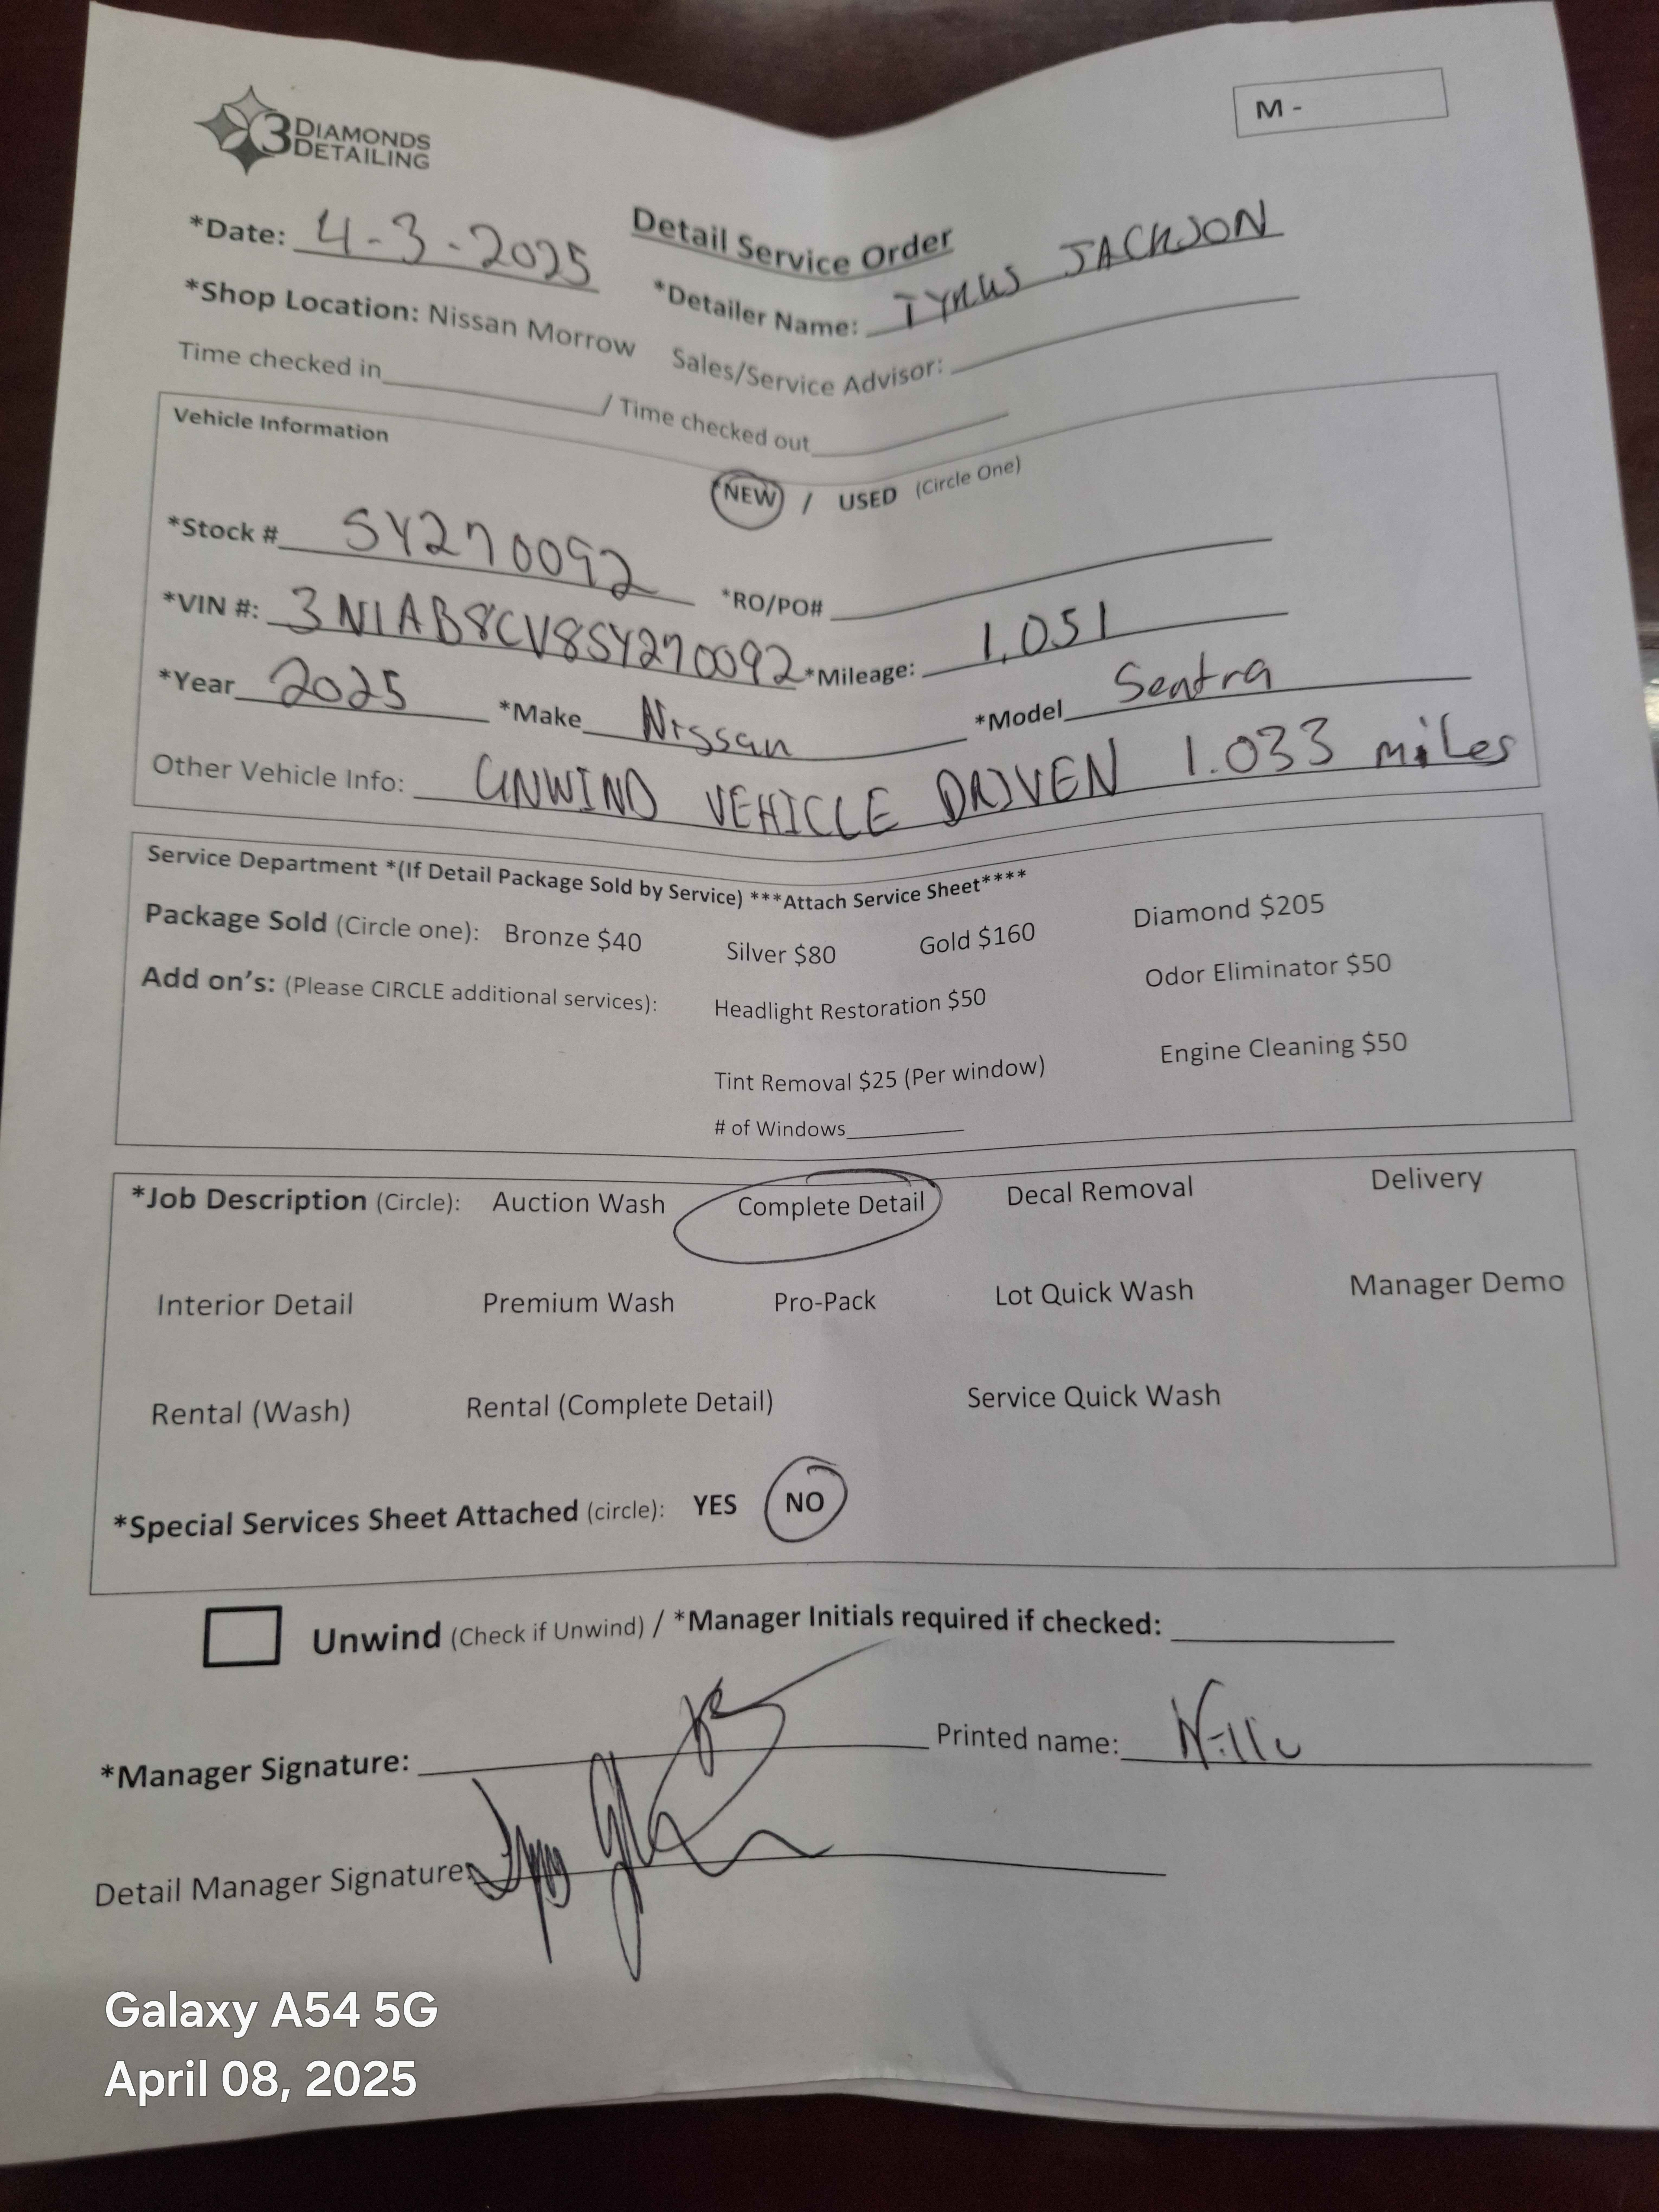 3 DIAMONDS
DETAILING
M -
Detail Service Order
*Date: 4-3-2025 *Detailer Name: TYRUS JACKSON
*Shop Location: Nissan Morrow Sales/Service Advisor:
Time checked in / Time checked out
Vehicle Information
NEW / USED (Circle One)
*Stock # SY270092 *RO/PO#
*VIN #: 3N1AB8CV8SY270092 *Mileage: 1,051
*Year 2025 *Make Nissan *Model Sentra
Other Vehicle Info: UNWIND VEHICLE DRIVEN 1.033 miles
Service Department *(If Detail Package Sold by Service) ***Attach Service Sheet****
Package Sold (Circle one): Bronze $40 Silver $80 Gold $160 Diamond $205
Add on's: (Please CIRCLE additional services): Headlight Restoration $50 Odor Eliminator $50
Tint Removal $25 (Per window) Engine Cleaning $50
# of Windows
*Job Description (Circle): Auction Wash Complete Detail Decal Removal Delivery
Interior Detail Premium Wash Pro-Pack Lot Quick Wash Manager Demo
Rental (Wash) Rental (Complete Detail) Service Quick Wash
*Special Services Sheet Attached (circle): YES NO
Unwind (Check if Unwind) / *Manager Initials required if checked:
*Manager Signature: Printed name:
Detail Manager Signature:
Galaxy A54 5G
April 08, 2025